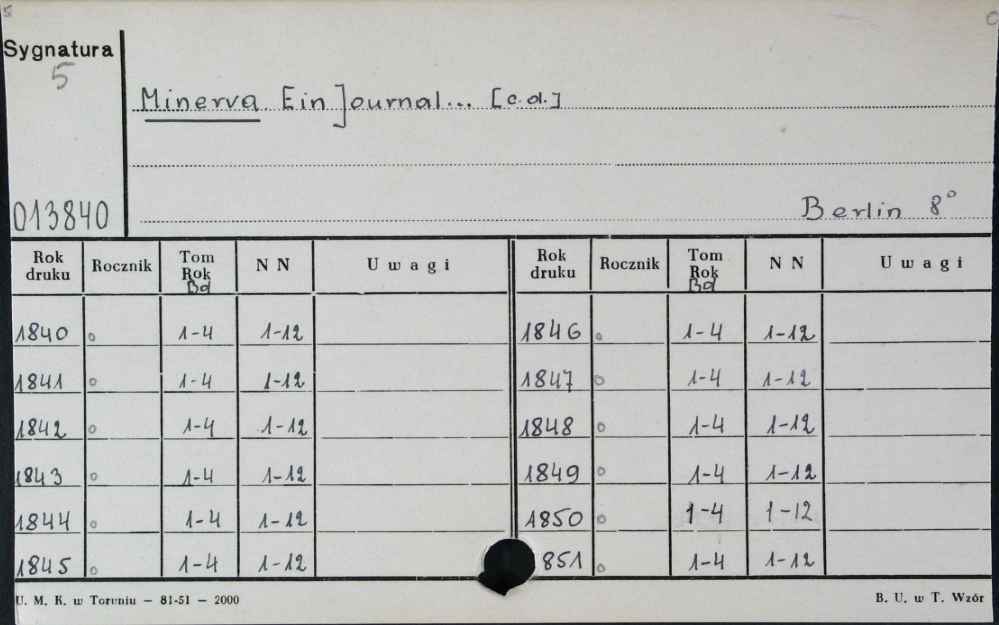 5
Sygnatura
5
Minerva Ein Journal... [c.d.]
013840
Berlin 8°
Rok druku Rocznik Tom Rok Bd NN Uwagi Rok druku Rocznik Tom Rok Bd NN Uwagi
1840 o 1-4 1-12 1846 o 1-4 1-12
1841 o 1-4 1-12 1847 o 1-4 1-12
1842 o 1-4 1-12 1848 o 1-4 1-12
1843 o 1-4 1-12 1849 o 1-4 1-12
1844 o 1-4 1-12 1850 o 1-4 1-12
1845 o 1-4 1-12 851 o 1-4 1-12
U. M. K. w Toruniu — 81-51 — 2000 B. U. w T. Wzór